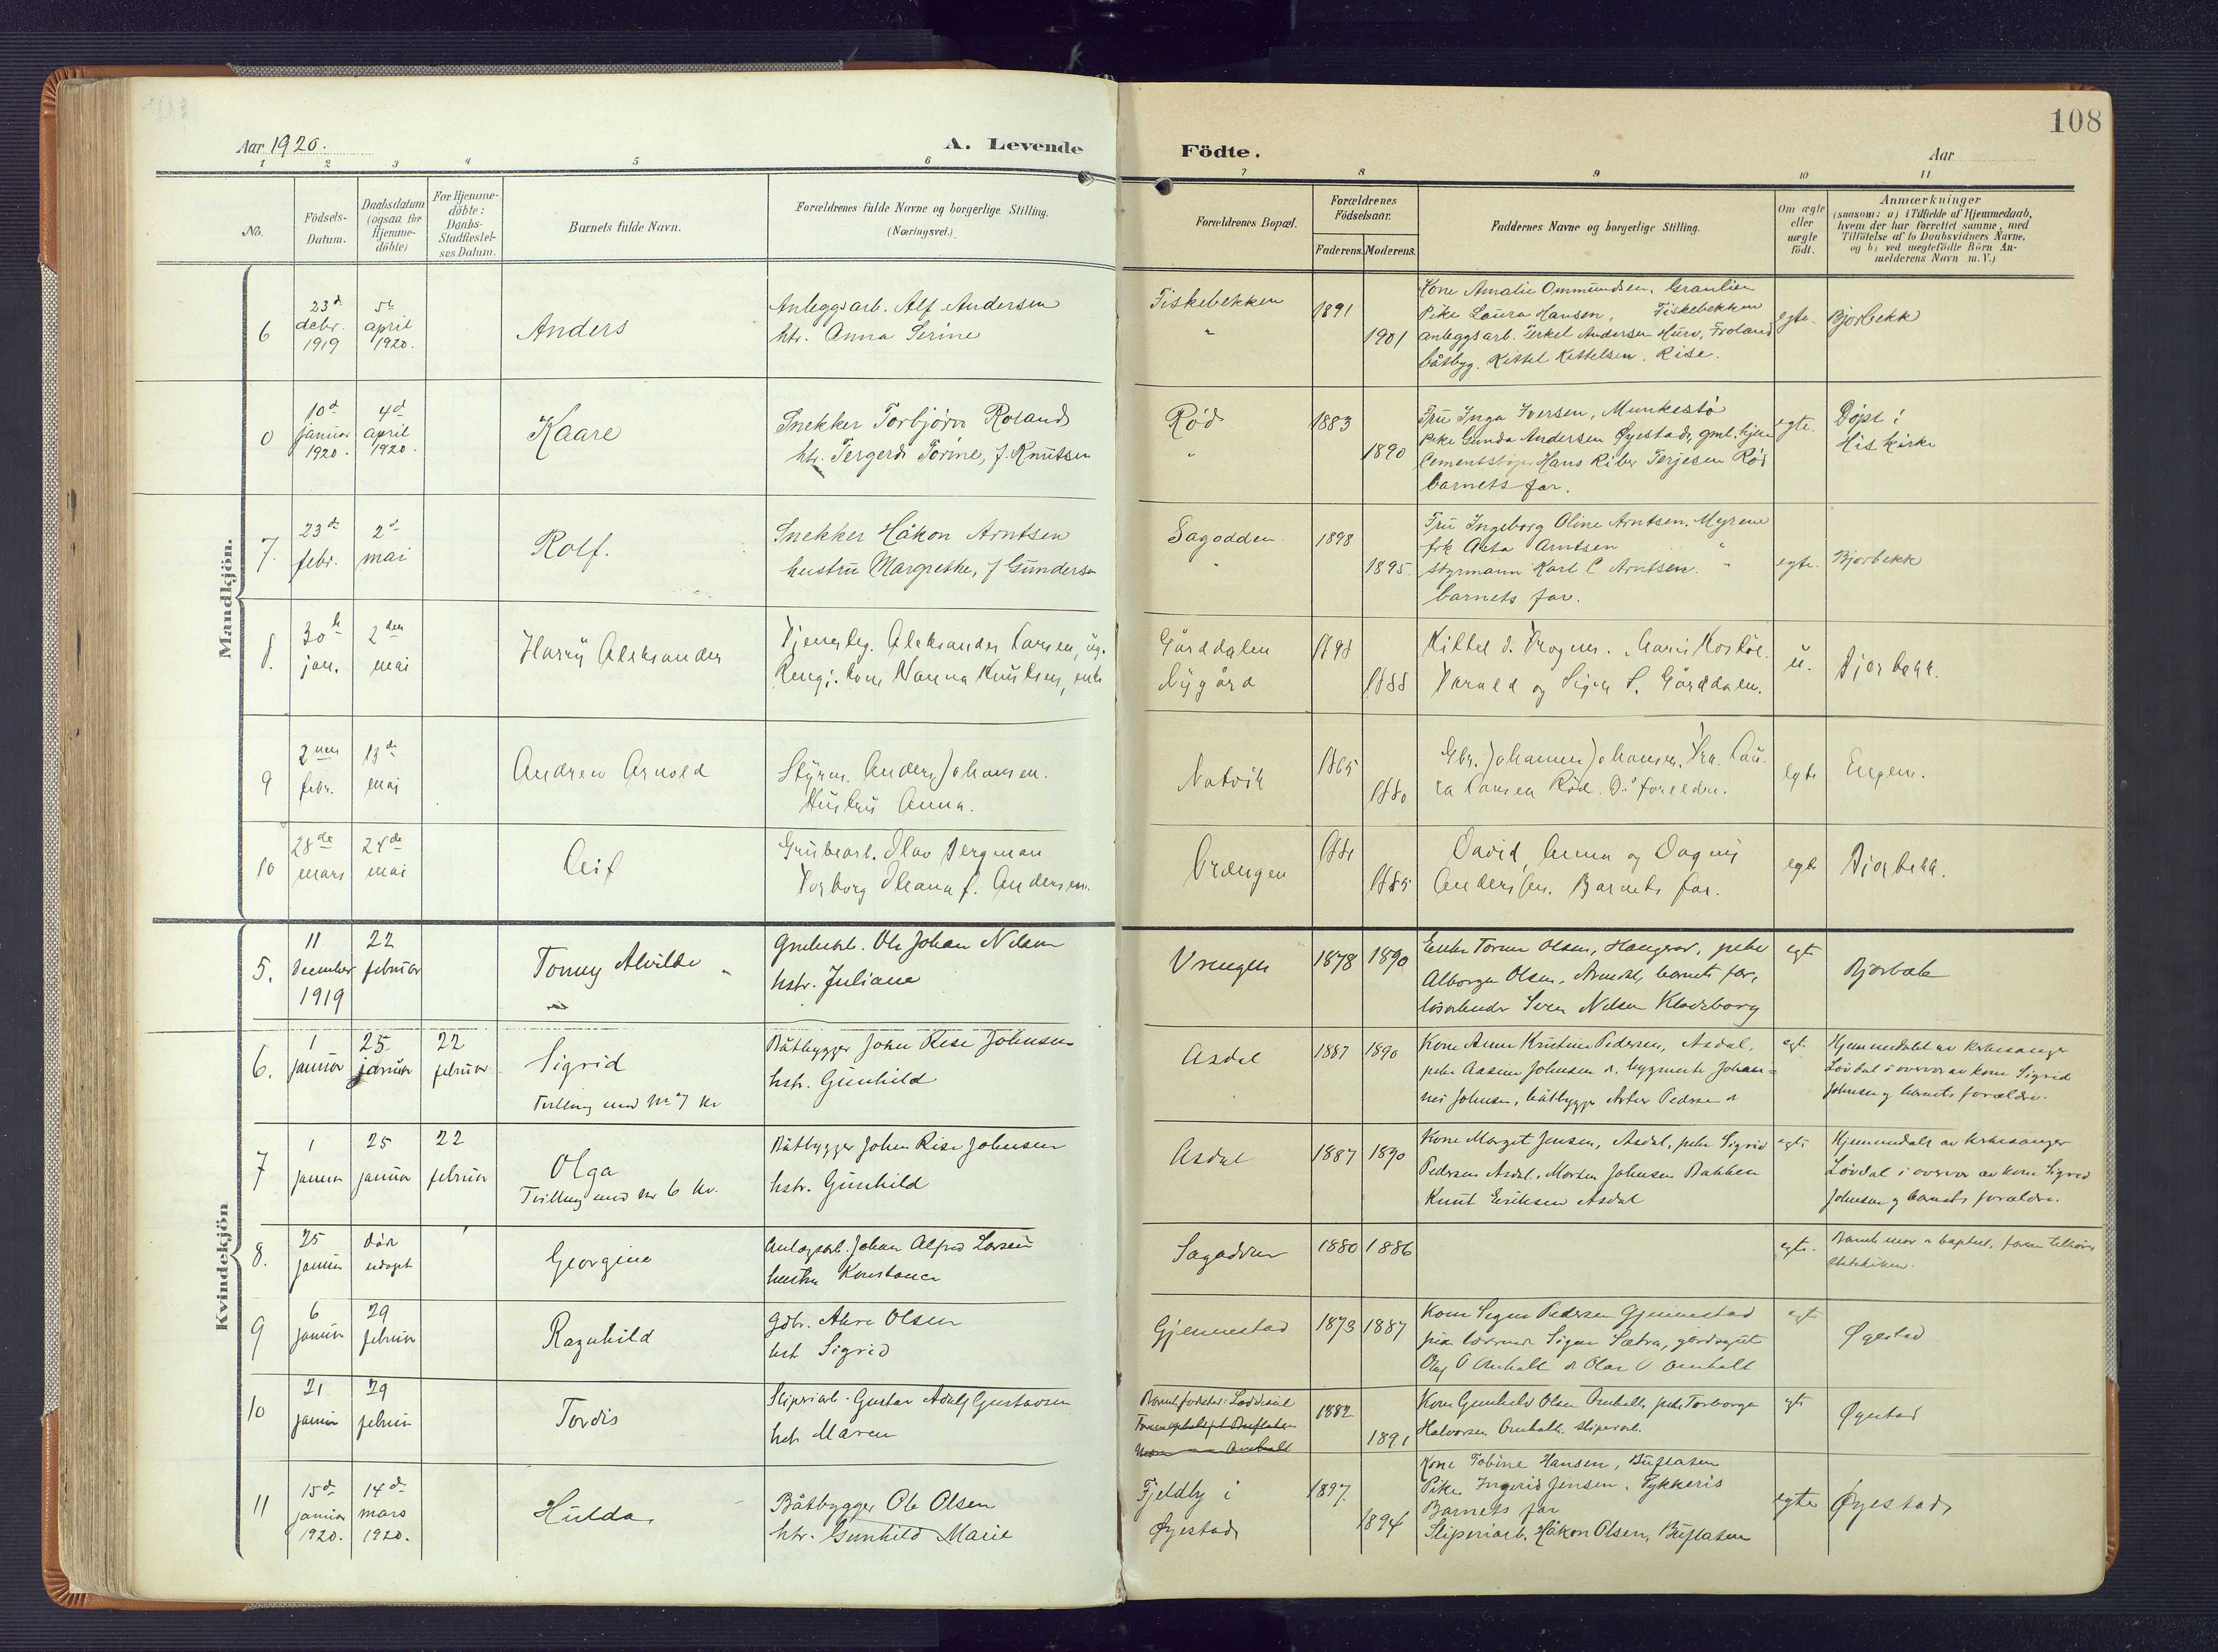 108
Aar 1920.
A. Levende Födte.
Aar
1 2 3 4 5 6 7 8 9 10 11
No.
Födsels-Datum.
Daabsdatum (ogsaa for Hjemme-döbte)
For Hjemme-döbte: Daabs-Stadfæstel-ses Datum.
Barnets fulde Navn.
Forældrenes fulde Navne og borgerlige Stilling. (Næringsvei.)
Forældrenes Bopæl.
Forældrenes Födselsaar.
Faderens. Moderens.
Faddernes Navne og borgerlige Stilling.
Om ægte eller uægte födt.
Anmærkninger
(saasom: a) i Tilfælde af Hjemmedaab,
hvem der har forrettet samme, med
Tilföielse af to Daabsvidners Navne,
og b) ved uægtefödte Börn An-
melderens Navn m. V.)
Mandkjön.
6
23d debr. 1919
5te april 1920.
Anders
Anleggsarb. Alf Andersen
htr. Anna Serine
Fiskebekken
"
1891
1901
Kone Amalie Ommundsen, Granlien
Pike Laura Hansen, Fiskebekken
anleggsarb. Terkel Andersen Hurv, Froland
båtbyg. Kittel Kittelsen, Rise.
egte.
Bjorbekk
0
10d januar 1920.
4d april 1920.
Kaare
Snekker Torbjørn Roland
htr. Tergerd Torine, f. Knutsen
Rød
"
1883
1890
Fru Inga Iversen, Munkestø
Pike Gunda Andersen Øyestad, gml. hjem
Cementstøper Hans Riber Terjesen Rød
barnets far.
egte.
Døpt i
His kirke
7.
23de febr.
2d mai
Rolf.
Snekker Håkon Arntsen
hustru Margrethe, f Gundersen
Sagodden
"
1898
1895.
Fru Ingeborg Oline Arntsen, Myrene
frk Arntsen "
styrmann Karl C Arntsen. "
barnets far.
egte.
Bjorbekk
8.
30te jan.
2den mai
Harry Aleksander
Aleksander Larsen, ug.
Rengj. kone Hanna Knutsen, enke
Gårddalen
Nygård
1898
1888
Kittel
Harald og Signe S. Gårddalen.
u.
Bjorbekk.
9
2nen febr.
13de mai
Andrew Arnold
Styrm. Anders Johansen.
Hustru Anna.
Natvik
1865
1880
Gbr. Johannes Johansen, Fra. Lau-
ra Larsen Rød. Ds foreldre.
egte
Engene.
10
28de mars
24de mai
Leif
Grubearb. Olav Bergman
Torborg Oleana f. Andersen.
Vrengen
1881
1885
David, Anna og Dagny
Andersen. Barnets far.
egte
Bjorbekk.
Kvindekjön
5.
11 December 1919
22 februar
Tonny Alvilde
Grubearb. Ole Johan Nilsen
hstr. Juliane
Vrengen
1878
1890
Enke Torine Olsen, Haugerov, pike
Alborga Olsen, Arendal, barnets far,
løsarbeider Sven Nilsen Klodeborg
egte
Bjorbek
6.
1 januar
25 januar
22 februar
Sigrid
Tvilling med no 7 kv
Båtbygger John Rise Johnsen
hstr. Gunhild
Asdal
1887
1890
Kone Anne Kristine Pedersen, Asdal,
pike Aasene Johnsen s. bygmester Johan=
nes Johnsen, båtbygger Arthur Pedersen
egte
Hjemmedøbt av kirkesanger
Løvdal i overvær av kone Sigrid
Johnsen og barnets forældre.
7
1 januar
25 januar
22 februar
Olga
Tvilling med no 6 kv.
Båtbygger John Rise Johnsen
hstr. Gunhild
Asdal
1887
1890
Kone Margit Jensen, Asdal, pike Sigrid
Pedersen Asdal, Morten Johnsen Bakken
Knut Eriksen Asdal
egte
Hjemmedøbt av kirkesanger
Løvdal i overvær av kone Sigrid
Johnsen og barnets forældre.
8.
25 januar
død udøpt
Georgine
Anlægsarb. Johan Alfred Larsen
hustru Konstance
Sagodden
1880
1886
egte.
Barnets mor er baptist, faren tilhører
statskirken.
9
6 januar
29 februar
Ragnhild
Gdbr. Olsen
hst Sigrid
Gjennestad
1873
1887
Kone Signe Pedersen Gjennestad
pike Signe Sætra, gårdsgut
Olaf O Omholt & Olav O Omholt
egte
Øyestad
10
21 januar
29 februar
Tordis
Sliperiarb. Gustav Adolf Gustavsen
hstr Maren
Barnets fødested: Løddesøl
1882
1891
Kone Gunhild Olsen Omholt, pike Torborga
Halvorsen Omholt, sliperiarb.
egte
Øyestad
11
15de januar 1920.
14de mars 1920.
Hulda
Båtbygger Ole Olsen
htr. Gunhild Marie
Fjeldby i
Øyestad
1897.
1894
Kone Tobine Hansen, Buflaten
Pike Ingrid Jensen, Lykkeris
Barnets far
Sliperiarb. Håkon Olsen, Buflaten
egte
Øyestad